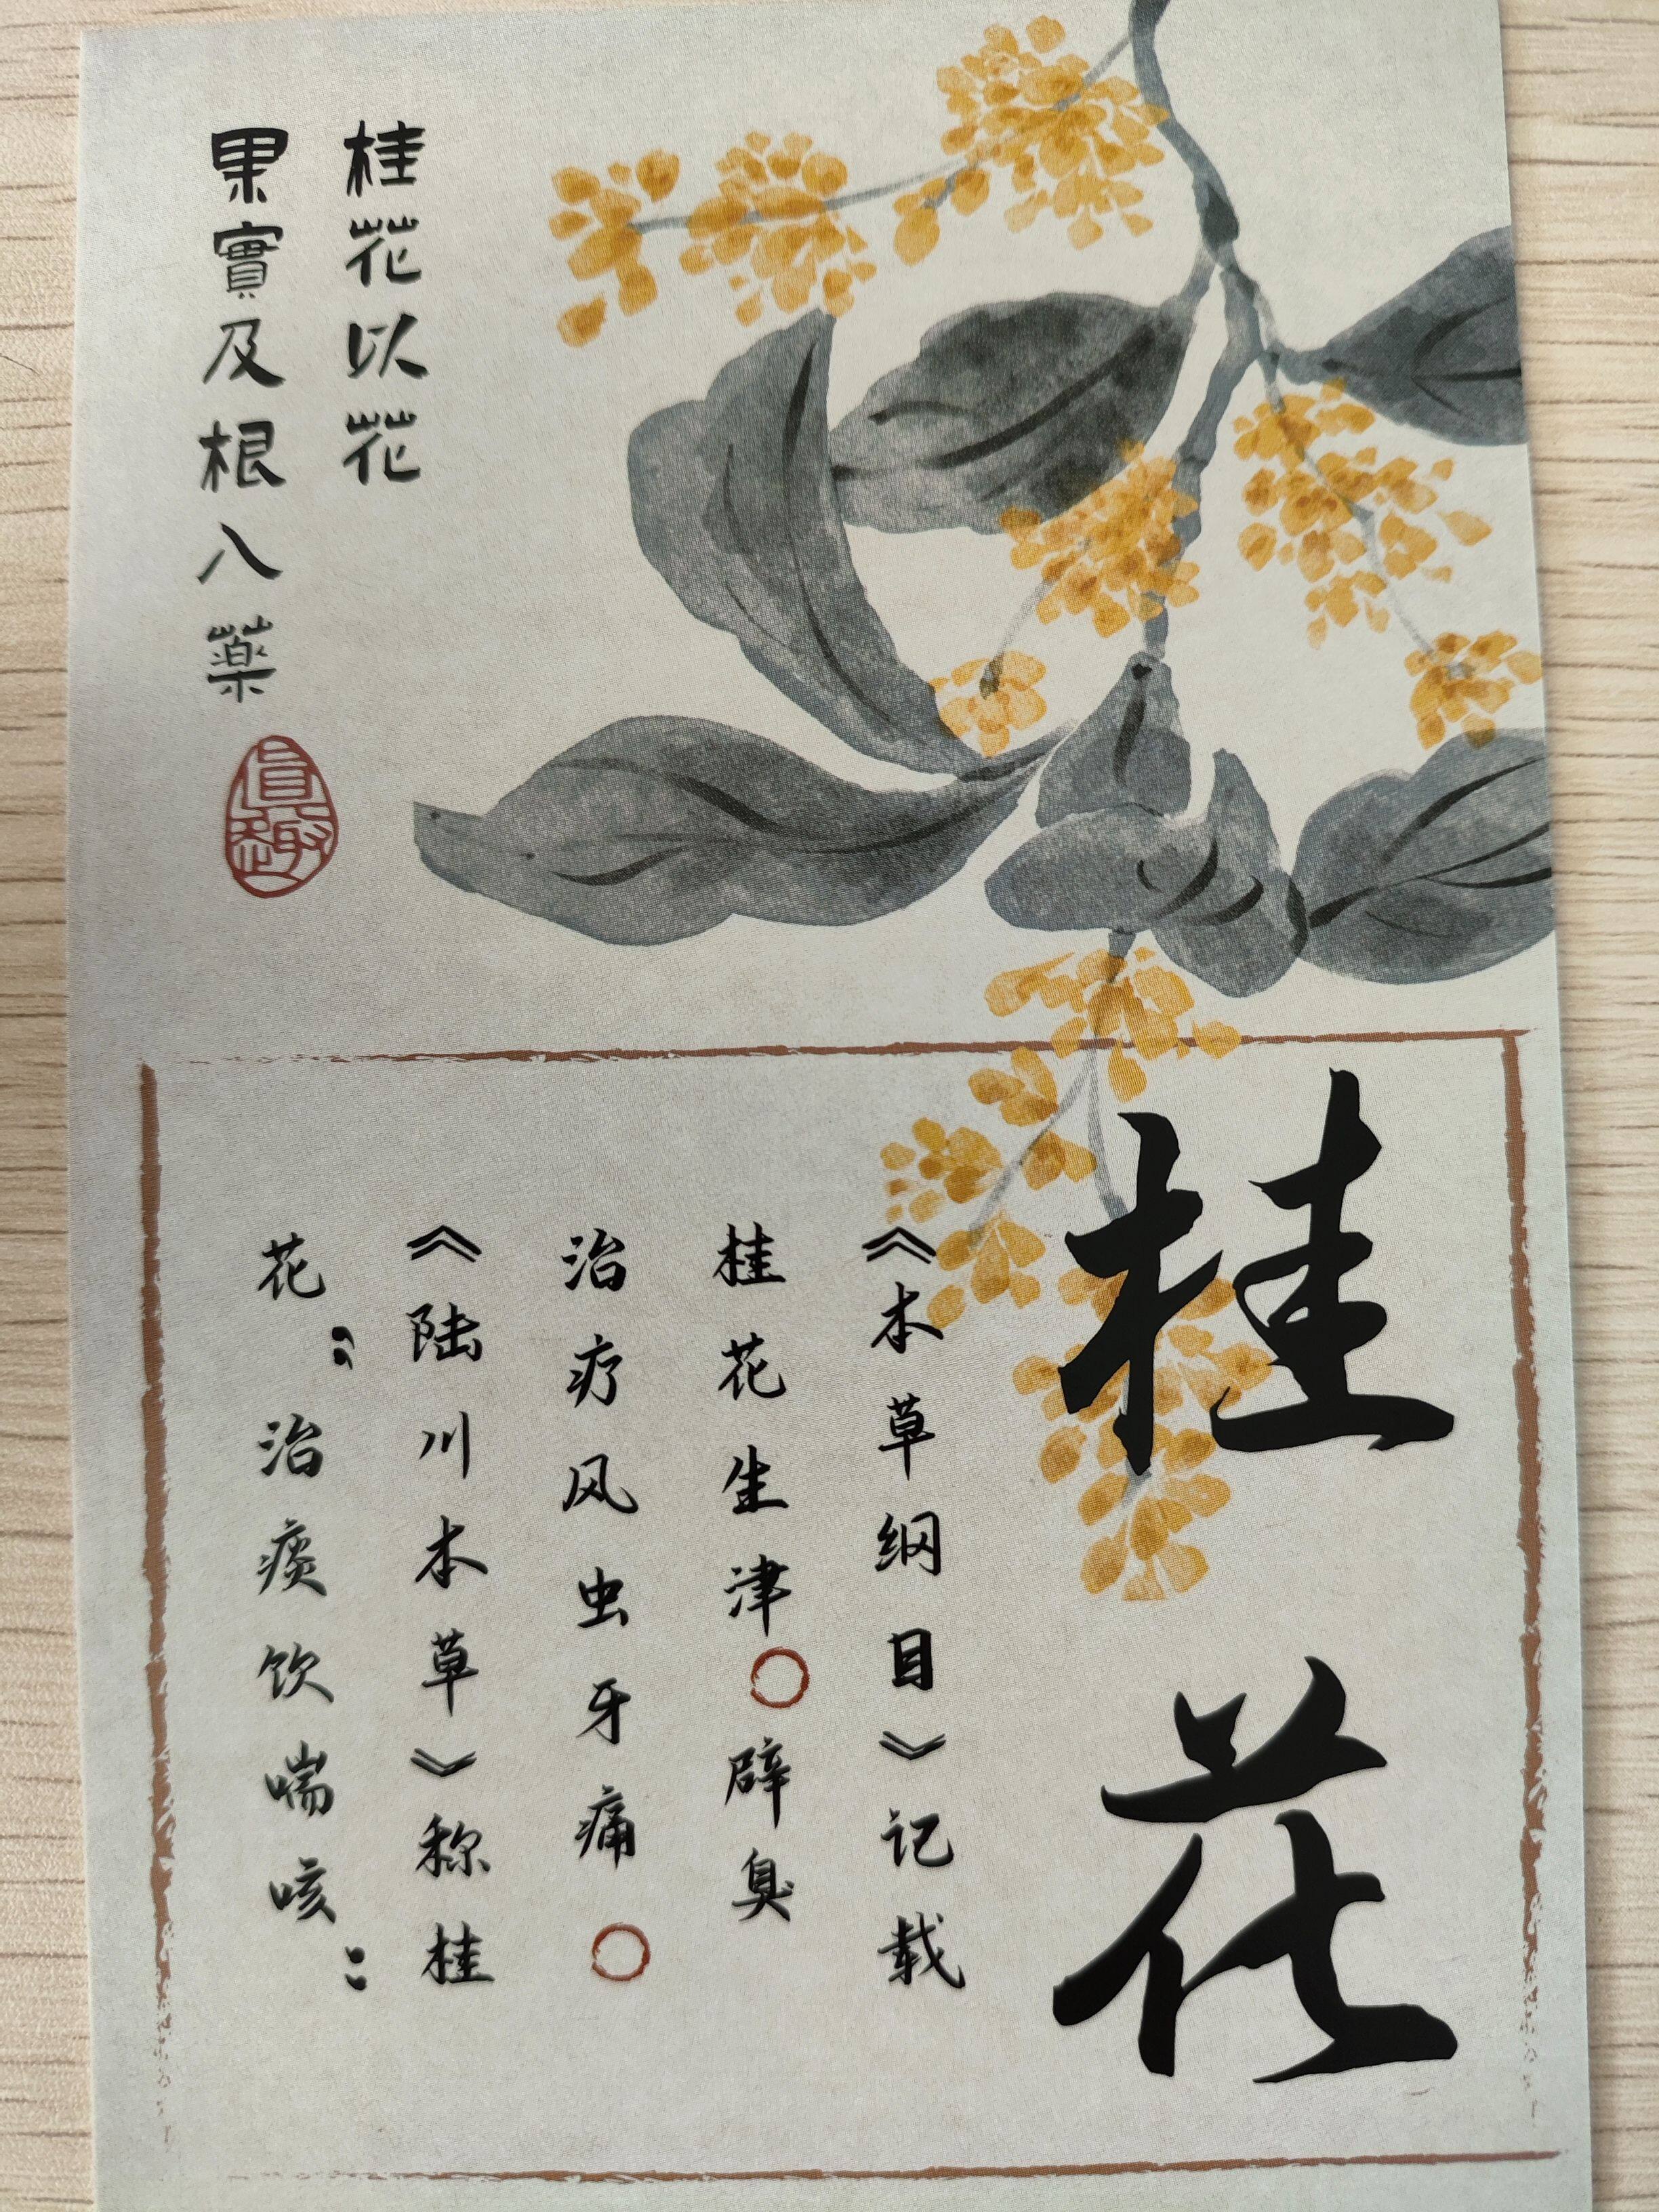 桂花以花
果實及根入藥
真趣
桂花
《本草纲目》记载
桂花生津○辟臭
治疗风虫牙痛○
《陆川本草》称桂
花：治痰饮喘咳：